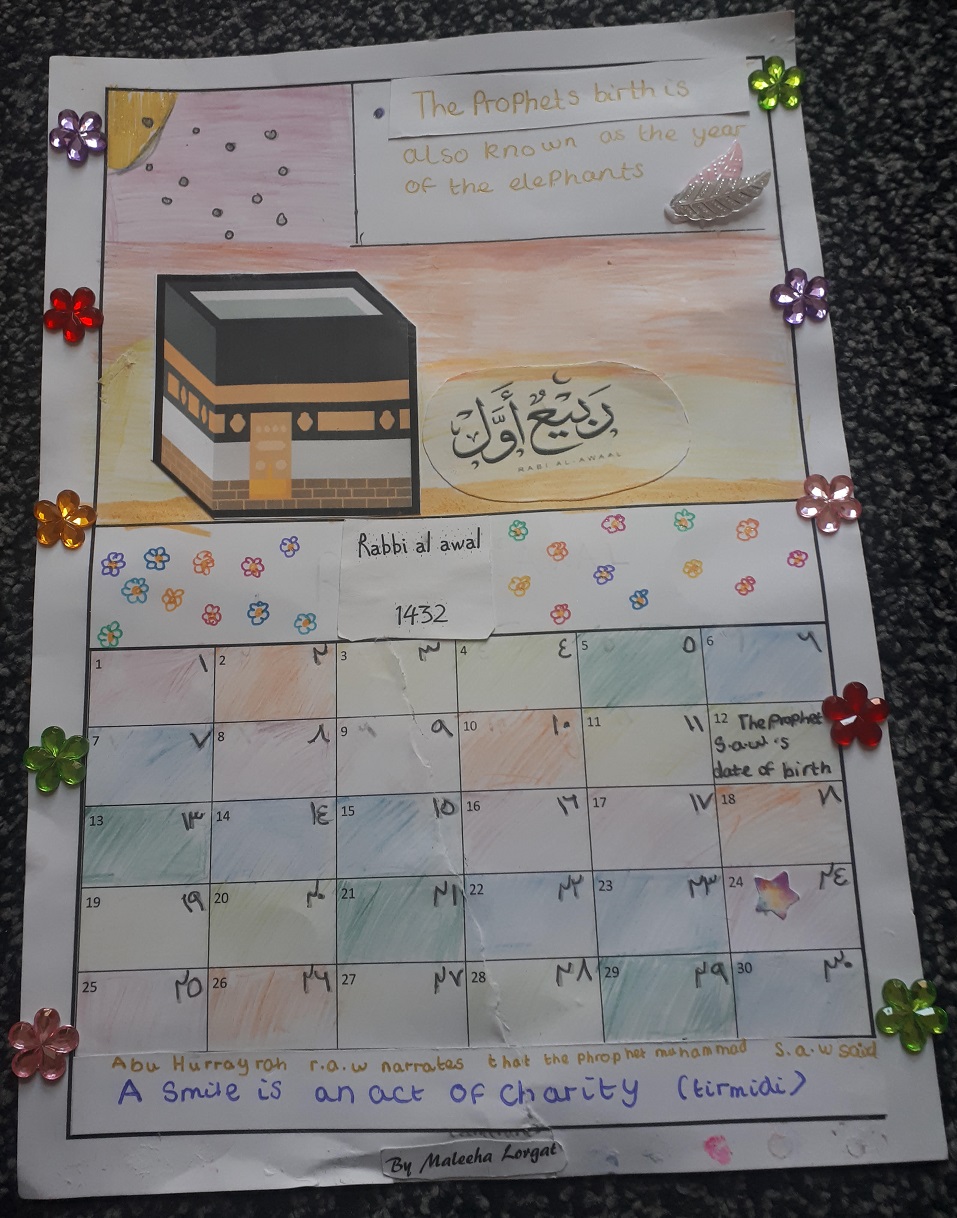 The Prophets birth is
also known as the year
of the elephants
رَبِيعٌ أَوَّل
RABI AL-AWAAL
Rabbi al awal
1432
1 ١ 2 ٢ 3 ٣ 4 ٤ 5 ٥ 6 ٦
7 ٧ 8 ٨ 9 ٩ 10 ١٠ 11 ١١ 12 The Prophet
S.a.w's
date of birth
13 ١٣ 14 ١٤ 15 ١٥ 16 ١٦ 17 ١٧ 18 ١٨
19 ١٩ 20 ٢٠ 21 ٢١ 22 ٢٢ 23 ٢٣ 24 ٢٤
25 ٢٥ 26 ٢٦ 27 ٢٧ 28 ٢٨ 29 ٢٩ 30 ٣٠
Abu Hurrayrah r.a.w narrates that the phrophet muhammad S.a.w said
A Smile is an act of charity (tirmidi)
By Maleeha Lorgat